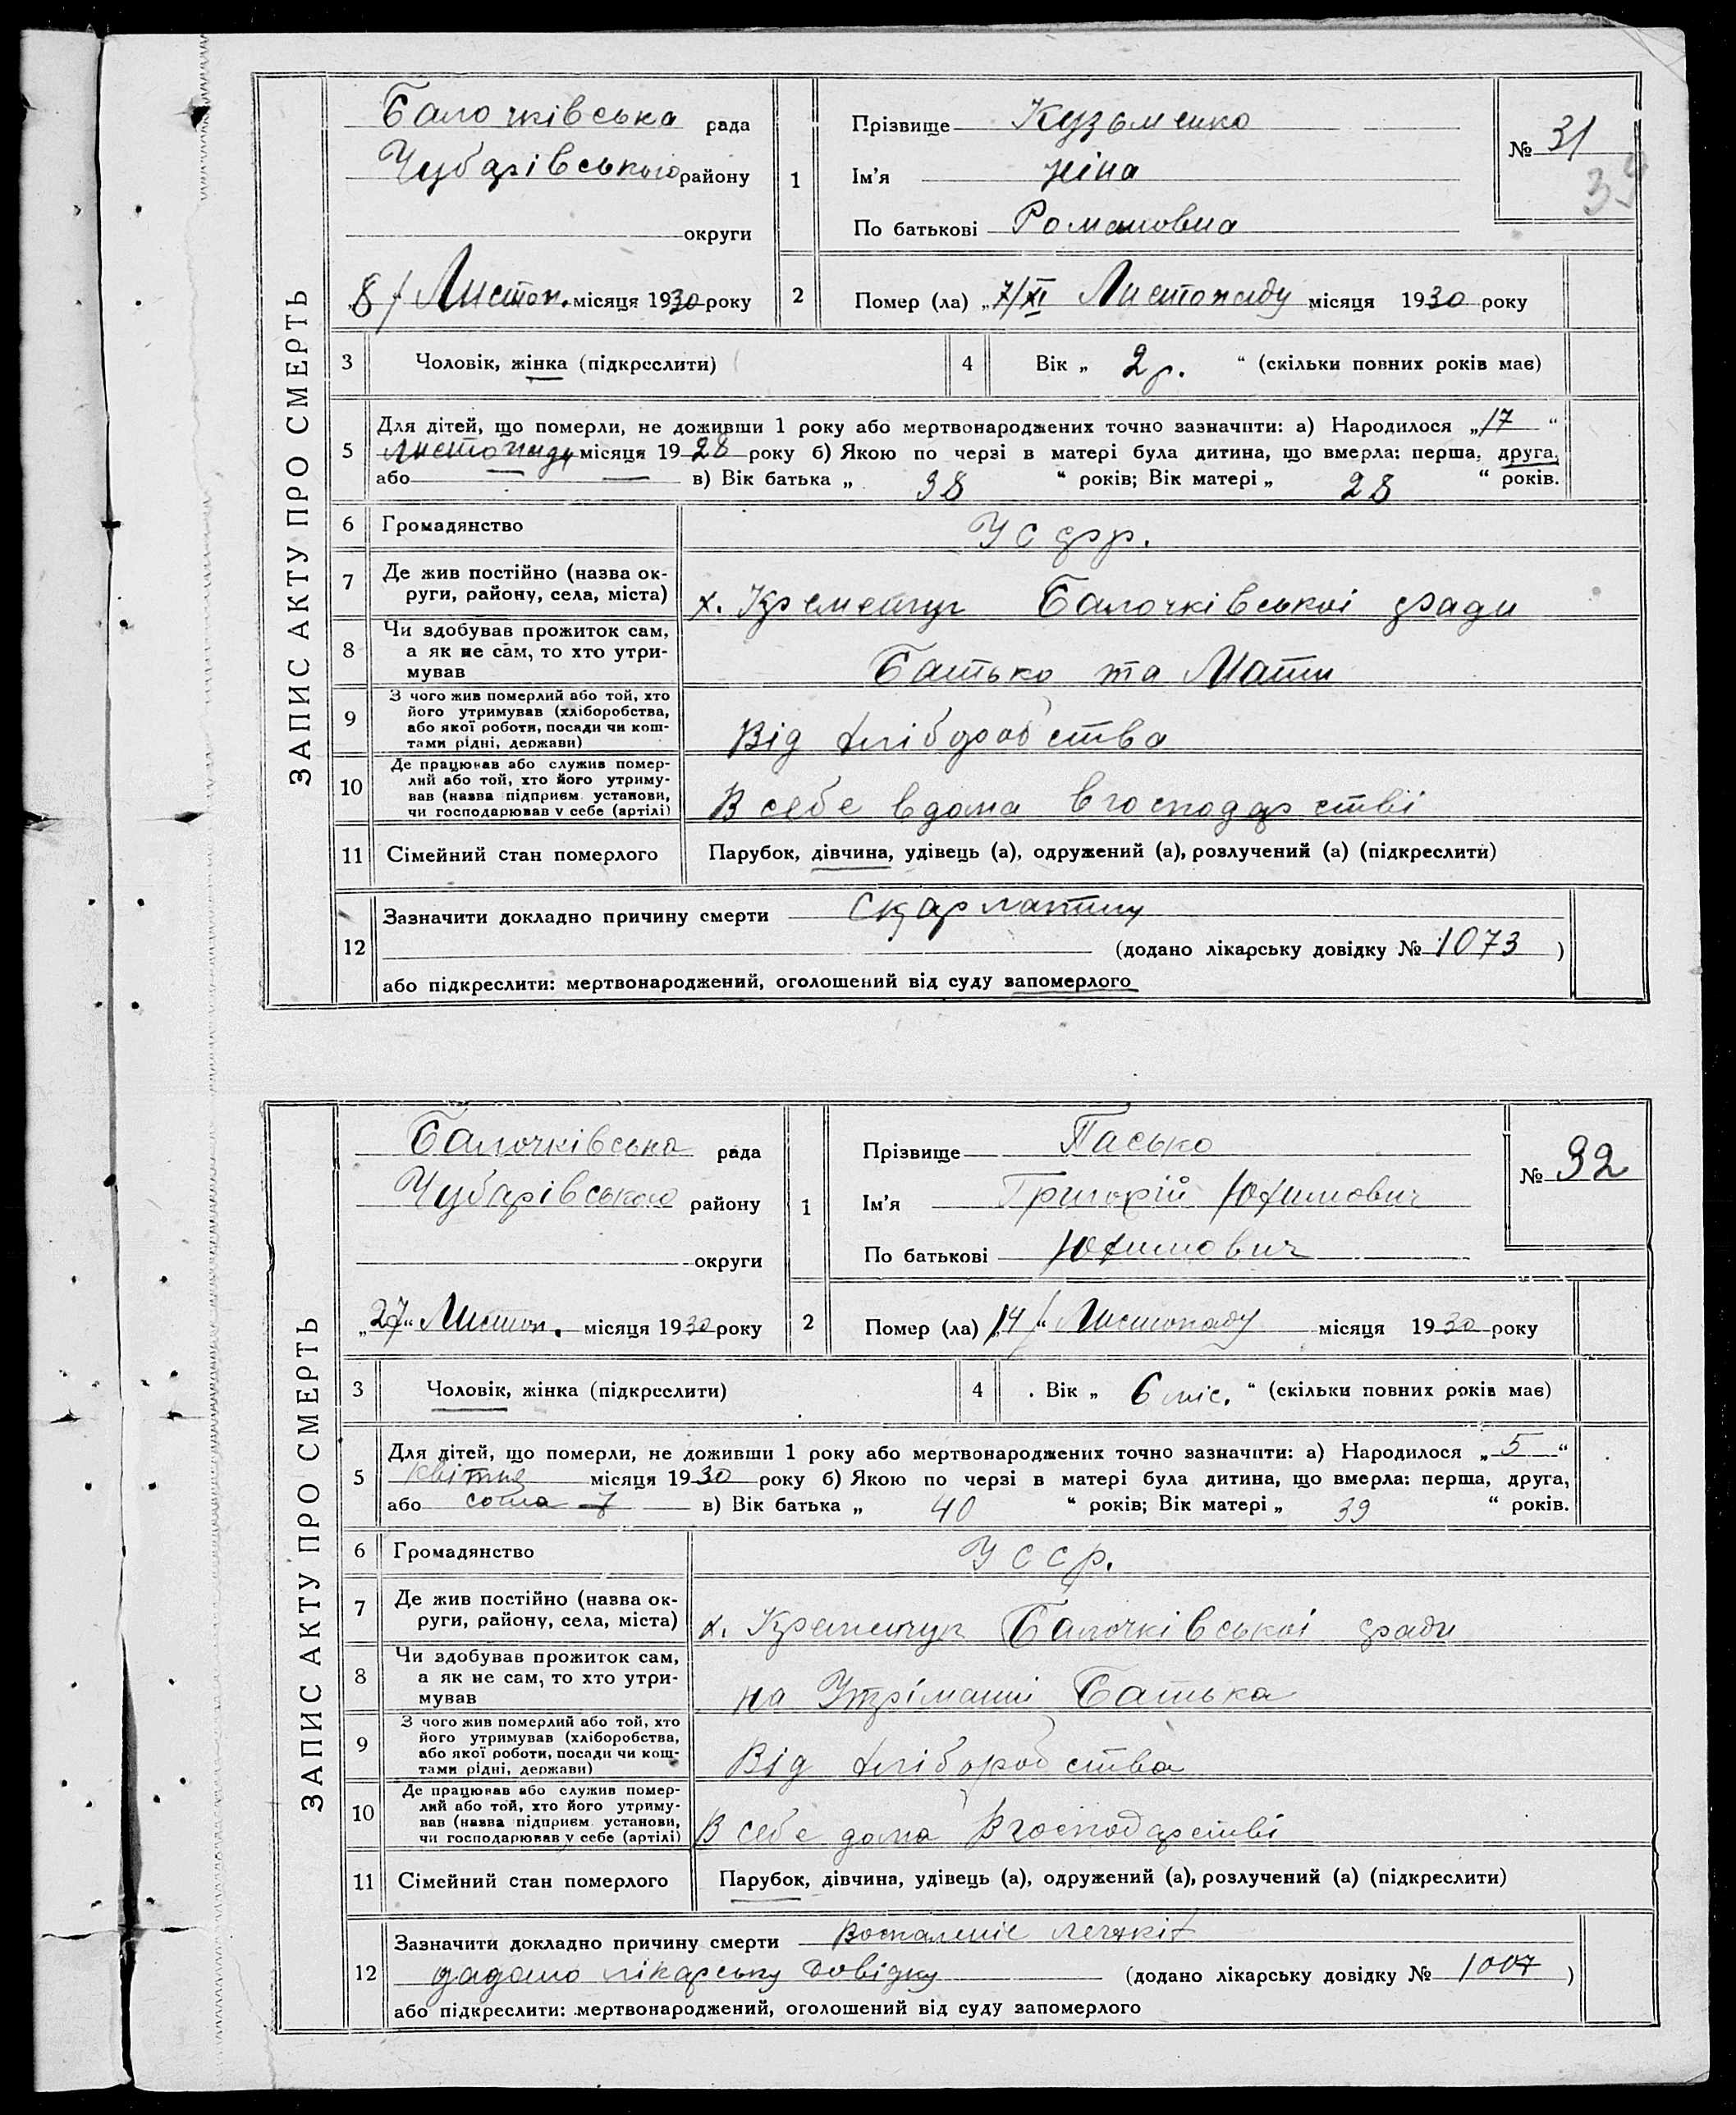 ЗАПИС АКТУ ПРО СМЕРТЬ
Балочківська рада
Чубарівського району
округи
„8" Листоп. місяця 1930 року
1
Прізвище Кузьменко
Ім'я Ніна
По батькові Романовна
№ 31
2
Помер (ла) „7/XI Листопаду місяця 1930 року
3 Чоловік, жінка (підкреслити)
4 Вік „ 2 р. " (скільки повних років має)
5 Для дітей, що померли, не доживши 1 року або мертвонароджених точно зазначити: а) Народилося „17"
листопаду місяця 1928 року б) Якою по черзі в матері була дитина, що вмерла: перша, друга,
або — в) Вік батька „ 38 " років; Вік матері „ 28 " років.
6 Громадянство Усфр.
7 Де жив постійно (назва ок-
руги, району, села, міста) х. Кременчук Балочківської ради
8 Чи здобував прожиток сам,
а як не сам, то хто утри-
мував Батько та Мати
9 З чого жив померлий або той, хто
його утримував (хліборобства,
або якої роботи, посади чи кош-
тами рідні, держави) Від хліборобства
10 Де працював або служив помер-
лий або той, хто його утриму-
вав (назва підприєм. установи,
чи господарював у себе (артілі) В себе вдома в господарстві
11 Сімейний стан померлого Парубок, дівчина, удівець (а), одружений (а), розлучений (а) (підкреслити)
12 Зазначити докладно причину смерти Скарлатину
(додано лікарську довідку № 1073 )
або підкреслити: мертвонароджений, оголошений від суду запомерлого
ЗАПИС АКТУ ПРО СМЕРТЬ
Балочківська рада
Чубарівського району
округи
„27" Листоп. місяця 1930 року
1
Прізвище Пасько
Ім'я Григорій Юхимович
По батькові Юхимович
№ 32
2
Помер (ла) „14" Листопаду місяця 1930 року
3 Чоловік, жінка (підкреслити)
4 Вік „ 6 міс. " (скільки повних років має)
5 Для дітей, що померли, не доживши 1 року або мертвонароджених точно зазначити: а) Народилося „5"
квітня місяця 1930 року б) Якою по черзі в матері була дитина, що вмерла: перша, друга,
або сьома 7 в) Вік батька „ 40 " років; Вік матері „ 39 " років.
6 Громадянство Усср.
7 Де жив постійно (назва ок-
руги, району, села, міста) х. Кременчук Балочківської ради
8 Чи здобував прожиток сам,
а як не сам, то хто утри-
мував на Утріманні Батька
9 З чого жив померлий або той, хто
його утримував (хліборобства,
або якої роботи, посади чи кош-
тами рідні, держави) Від хліборобства
10 Де працював або служив помер-
лий або той, хто його утриму-
вав (назва підприєм. установи,
чи господарював у себе (артілі) В себе дома В господарстві
11 Сімейний стан померлого Парубок, дівчина, удівець (а), одружений (а), розлучений (а) (підкреслити)
12 Зазначити докладно причину смерти Воспаленіє легких
дадано лікарську довідку (додано лікарську довідку № 1007 )
або підкреслити: мертвонароджений, оголошений від суду запомерлого